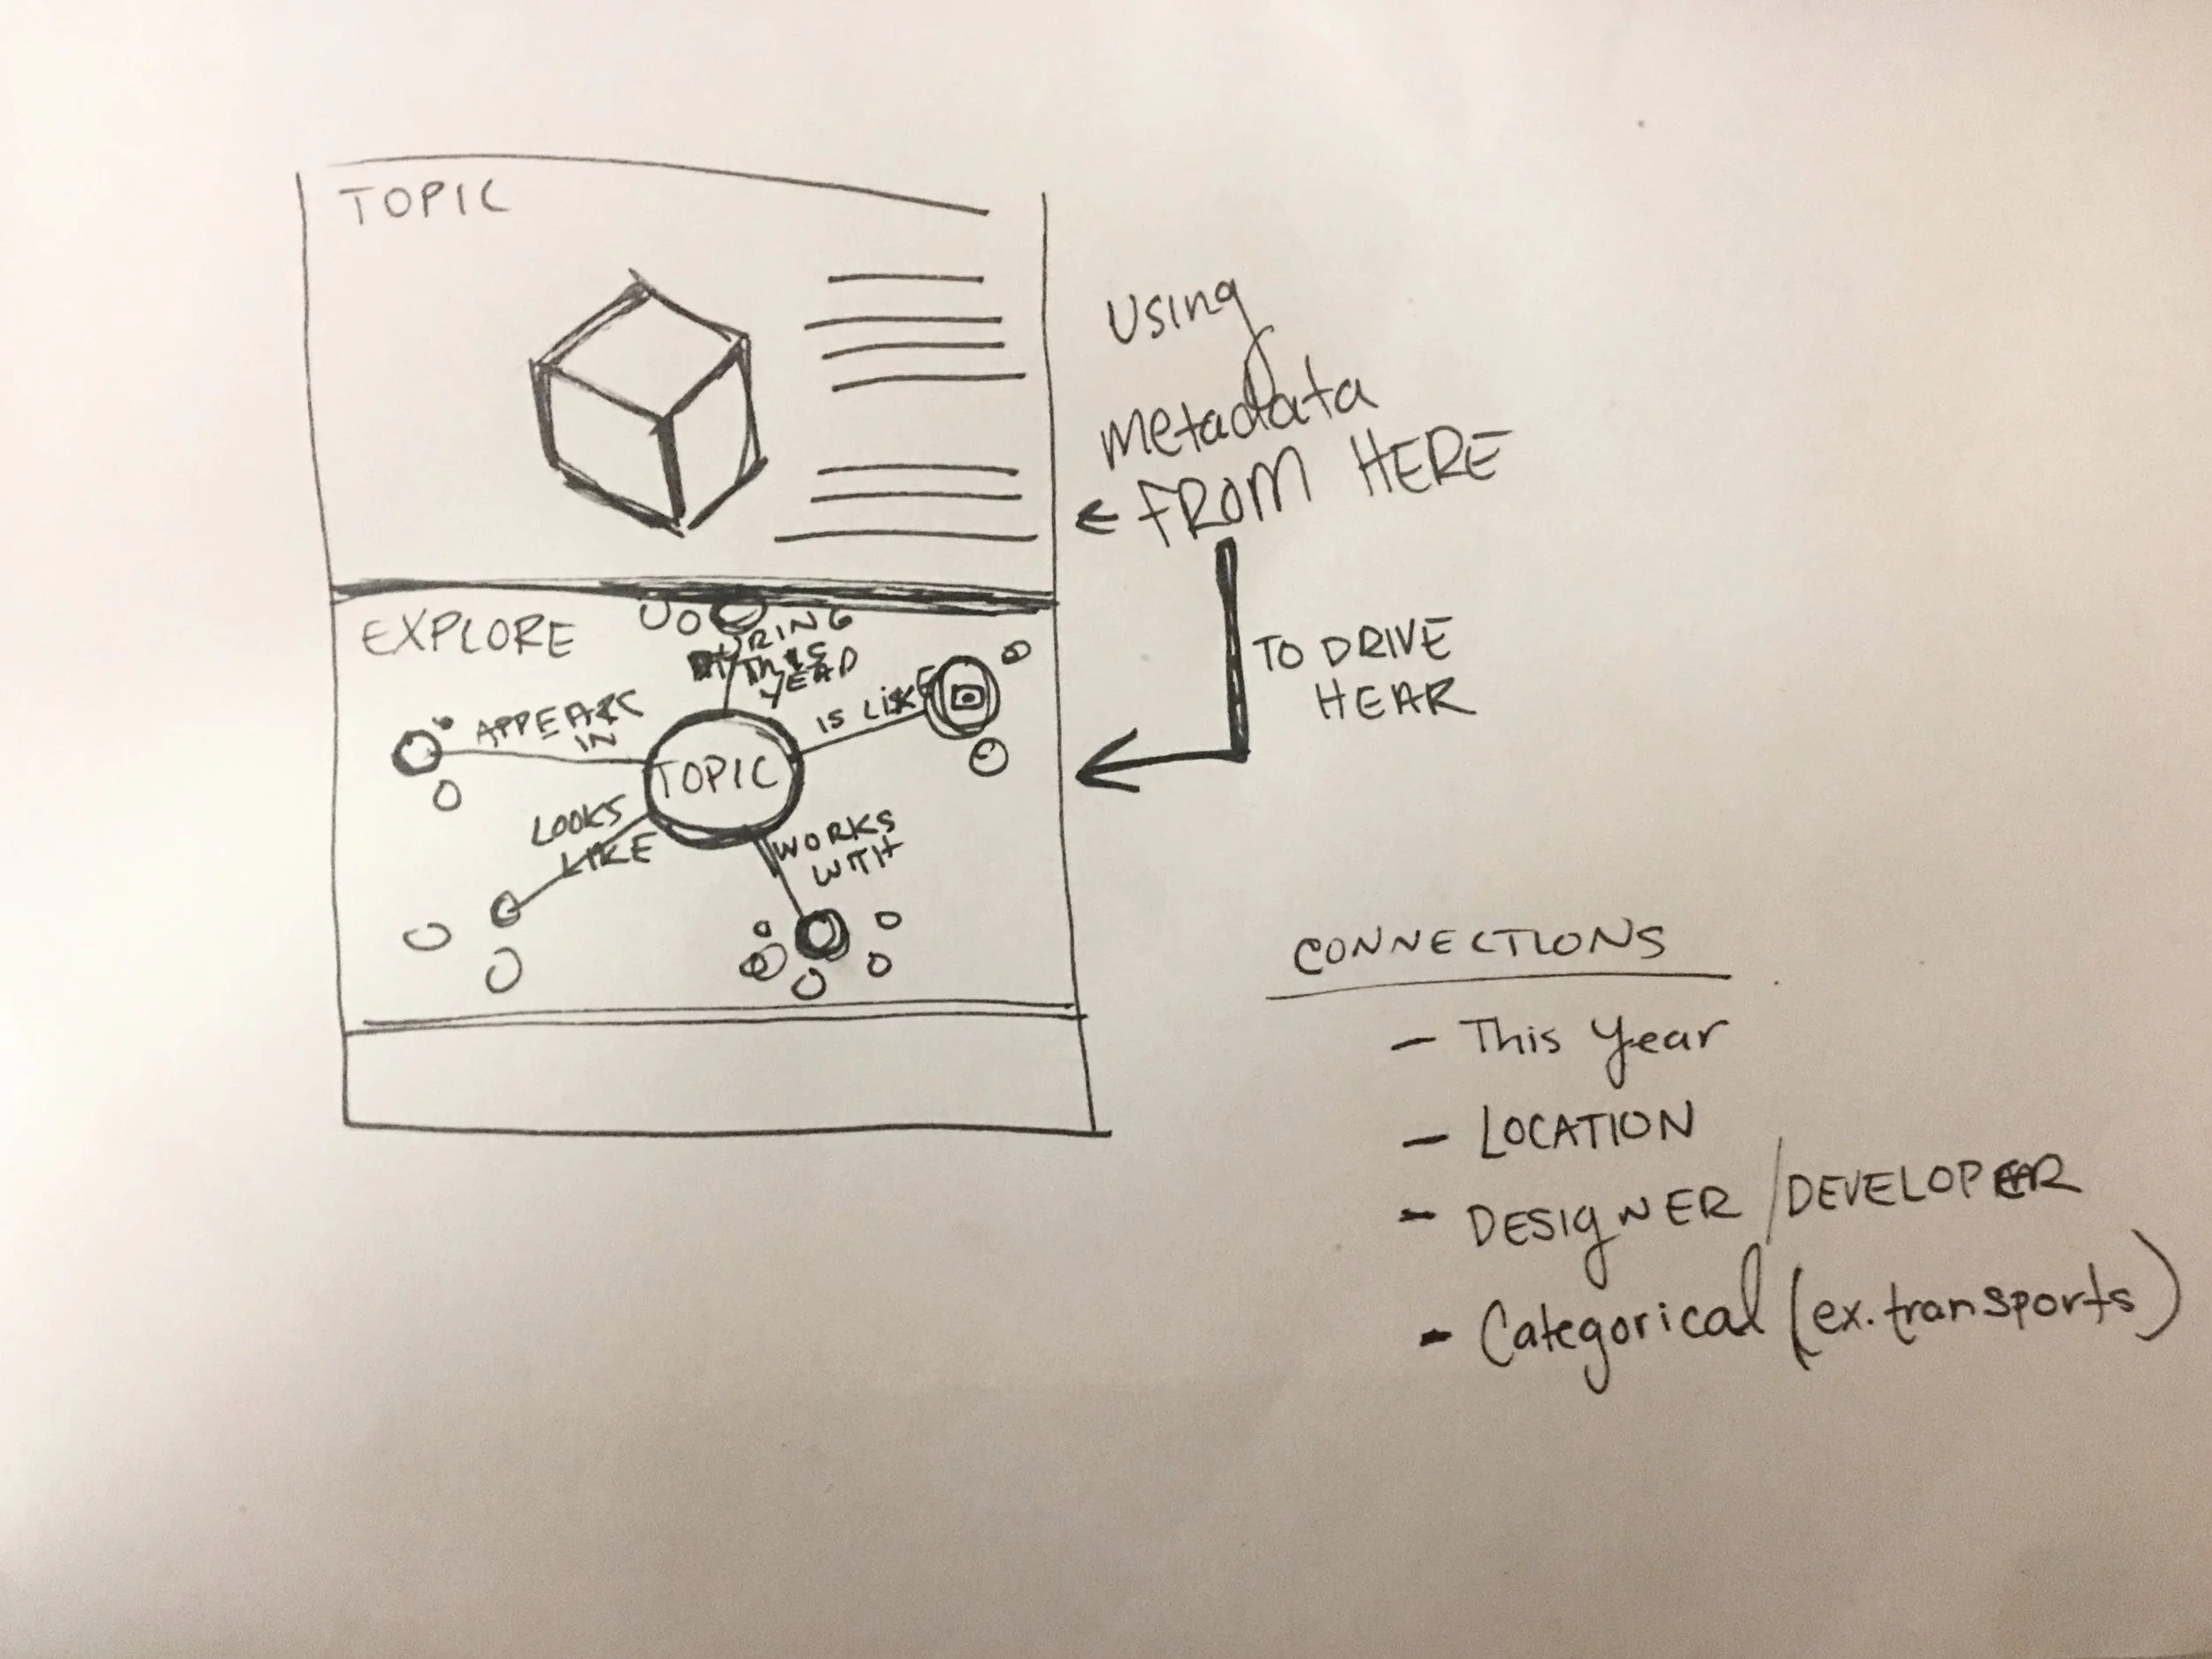 TOPIC
Using
metadata
FROM HERE
TO DRIVE
HEAR
EXPLORE
DURING
THIS
YEAR
IS LIKE
APPEARS
IN
TOPIC
LOOKS
LIKE
WORKS
WITH
CONNECTIONS
- This Year
- LOCATION
- DESIGNER / DEVELOPER
- Categorical (ex. transports)